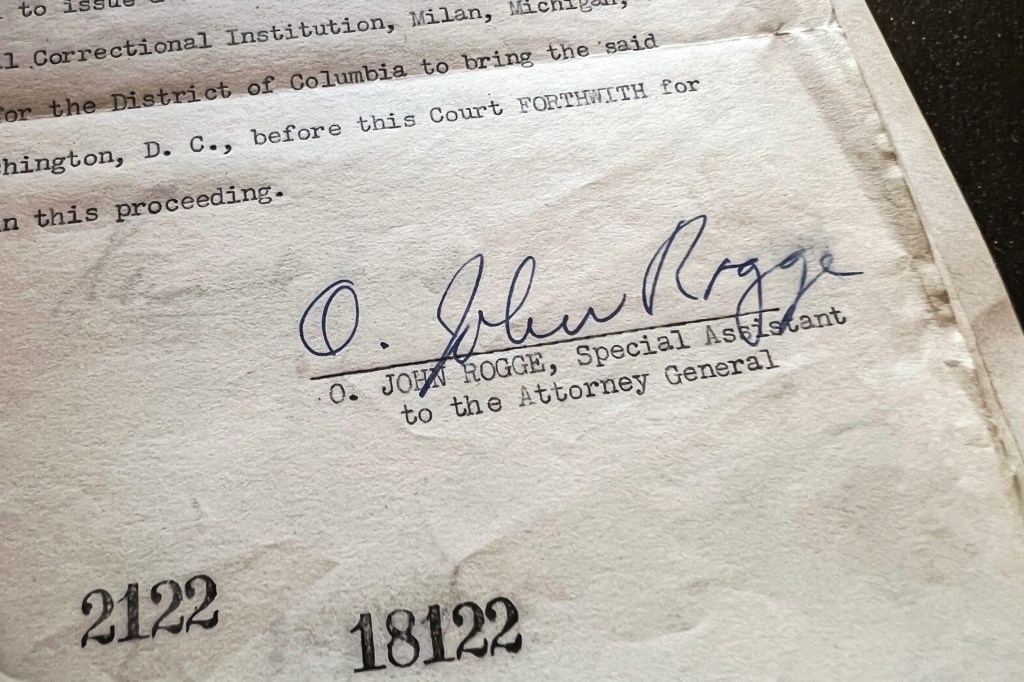 to issue a
l Correctional Institution, Milan, Michigan,
for the District of Columbia to bring the said
hington, D. C., before this Court FORTHWITH for
n this proceeding.
O. John Rogge
O. JOHN ROGGE, Special Assistant
to the Attorney General
2122
18122